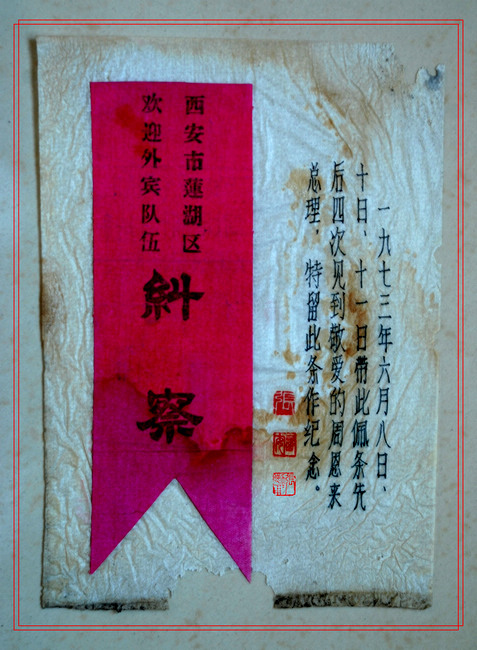 一九七三年六月八日、
十日、十一日带此佩条先
后四次见到敬爱的周恩来
总理，特留此条作纪念。
張
西安市蓮湖区
欢迎外宾队伍
糾察